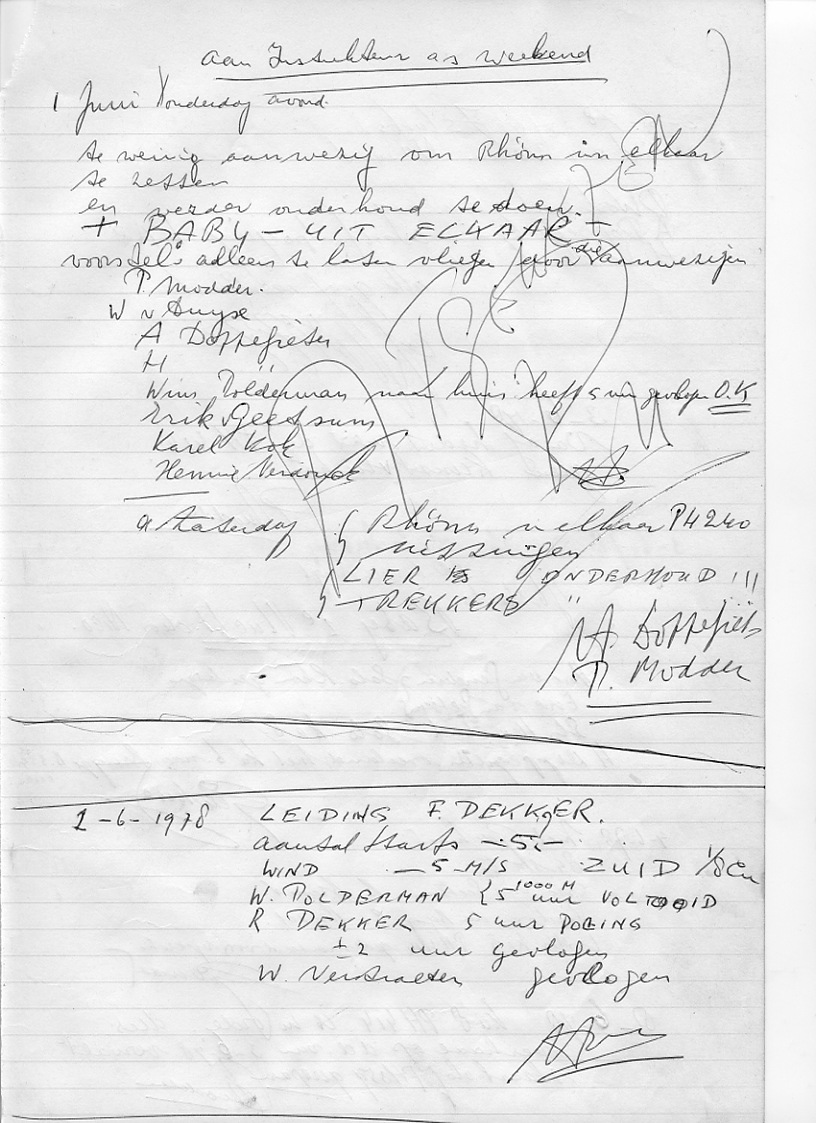 aan Instukteur as weekend
1 Juni donderdag avond.
te weinig aanwezig om Rhönn in elkaar
te zetten
en verder onderhoud te doen.
+ BABY - UIT ELKAAR +
voorstel: adleen te laten vliegen door die aanwezigen
P. Modder.
W v Duyse
A Doppegieter
H "
Wim Polderman naar huis heeft 5 uur gevlogen O.K
Erik Geetsum
Karel Kok
Hennie Verdonck
zaterdag { Rhönn in elkaar PH 240
LIER ONDERHOUD !!!
TREKKERS "
A. Doppegieter
P. Modder
2-6-1978 LEIDING F. DEKKER.
aantal starts -5-
WIND - 5 M/S ZUID 1/8 Cu
W. POLDERMAN { 5 uur 1000 M VOLTOOID
R DEKKER 5 uur POGING
± 2 uur gevlogen
W. Verstraeten gevlogen